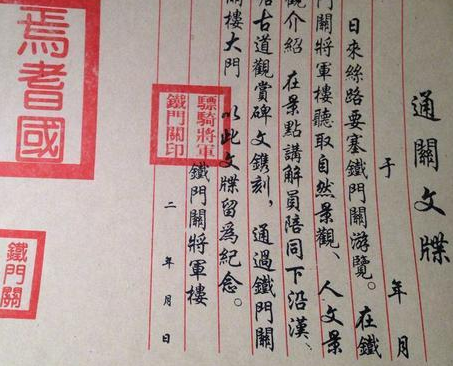 通關文牒
于 年 月
日來絲路要塞鐵門關游覽。在鐵
門關將軍樓聽取自然景觀、人文景
觀介紹 在景點講解員陪同下沿漢、
唐古道觀賞碑文鐫刻，通過鐵門關
關樓大門 以此文牒留為紀念。
鐵門關將軍樓
二 年 月 日
驃騎將軍
鐵門關印
焉耆國
鐵門關